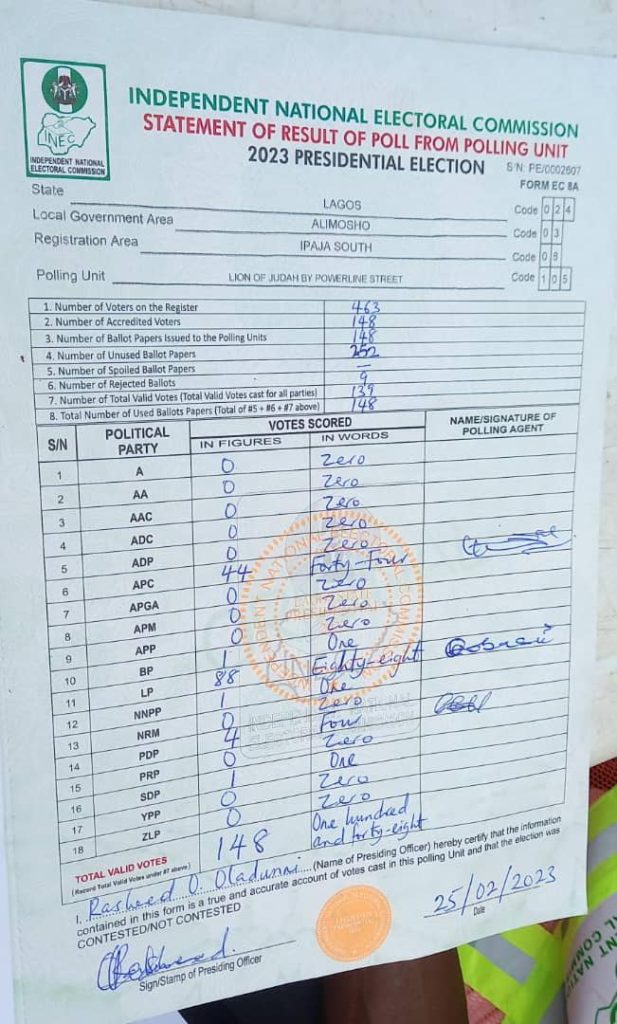 INEC
INDEPENDENT NATIONAL
ELECTORAL COMMISSION
INDEPENDENT NATIONAL ELECTORAL COMMISSION
STATEMENT OF RESULT OF POLL FROM POLLING UNIT
2023 PRESIDENTIAL ELECTION
S/N: PE/0002607
FORM EC 8A
State LAGOS Code 0 2 4
Local Government Area ALIMOSHO Code 0 3
Registration Area IPAJA SOUTH Code 0 8
Polling Unit LION OF JUDAH BY POWERLINE STREET Code 1 0 5
1. Number of Voters on the Register 463
2. Number of Accredited Voters 148
3. Number of Ballot Papers Issued to the Polling Units 148
4. Number of Unused Ballot Papers 252
5. Number of Spoiled Ballot Papers —
6. Number of Rejected Ballots 9
7. Number of Total Valid Votes (Total Valid Votes cast for all parties) 139
8. Total Number of Used Ballots Papers (Total of #5 + #6 + #7 above) 148
S/N POLITICAL PARTY VOTES SCORED NAME/SIGNATURE OF POLLING AGENT
IN FIGURES IN WORDS
1 A 0 Zero
2 AA 0 Zero
3 AAC 0 Zero
4 ADC 0 Zero
5 ADP 0 Zero
6 APC 44 Forty-Four
7 APGA 0 Zero
8 APM 0 Zero
9 APP 0 Zero
10 BP 1 One
11 LP 88 Eighty-eight
12 NNPP 1 One
13 NRM 0 Zero
14 PDP 4 Four
15 PRP 0 Zero
16 SDP 1 One
17 YPP 0 Zero
18 ZLP 0 Zero
TOTAL VALID VOTES 148 One hundred and forty-eight
(Record Total Valid Votes under #7 above)
I, Rasheed O. Oladunni (Name of Presiding Officer) hereby certify that the information
contained in this form is a true and accurate account of votes cast in this polling Unit and that the election was
CONTESTED/NOT CONTESTED
25/02/2023
Date
Sign/Stamp of Presiding Officer